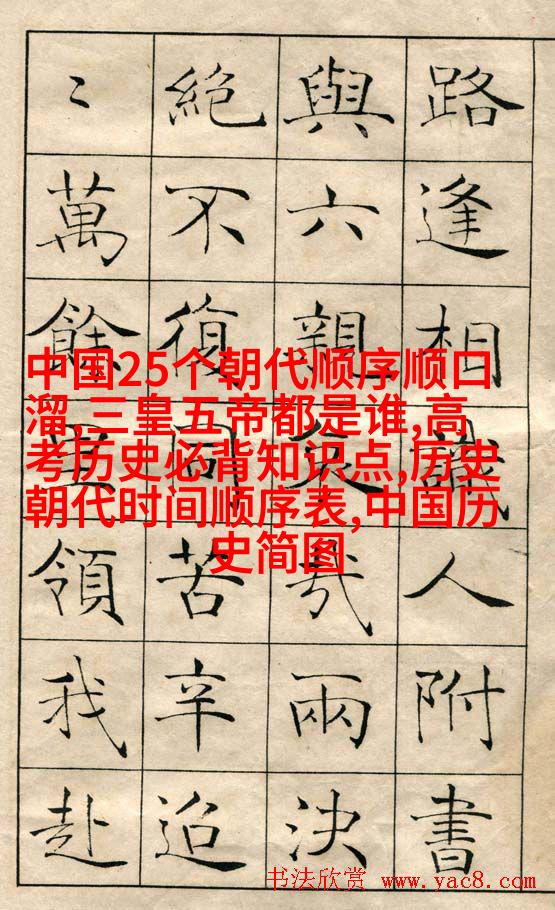 路逢相識人附書
與六親哀哉兩決
絶不復同苦辛迢
〻萬餘領我赴
中国25个朝代顺序顺口
溜,三皇五帝都是谁,高
考历史必背知识点,历史
朝代时间顺序表,中国历
史简图
书法欣赏 www.yac8.com